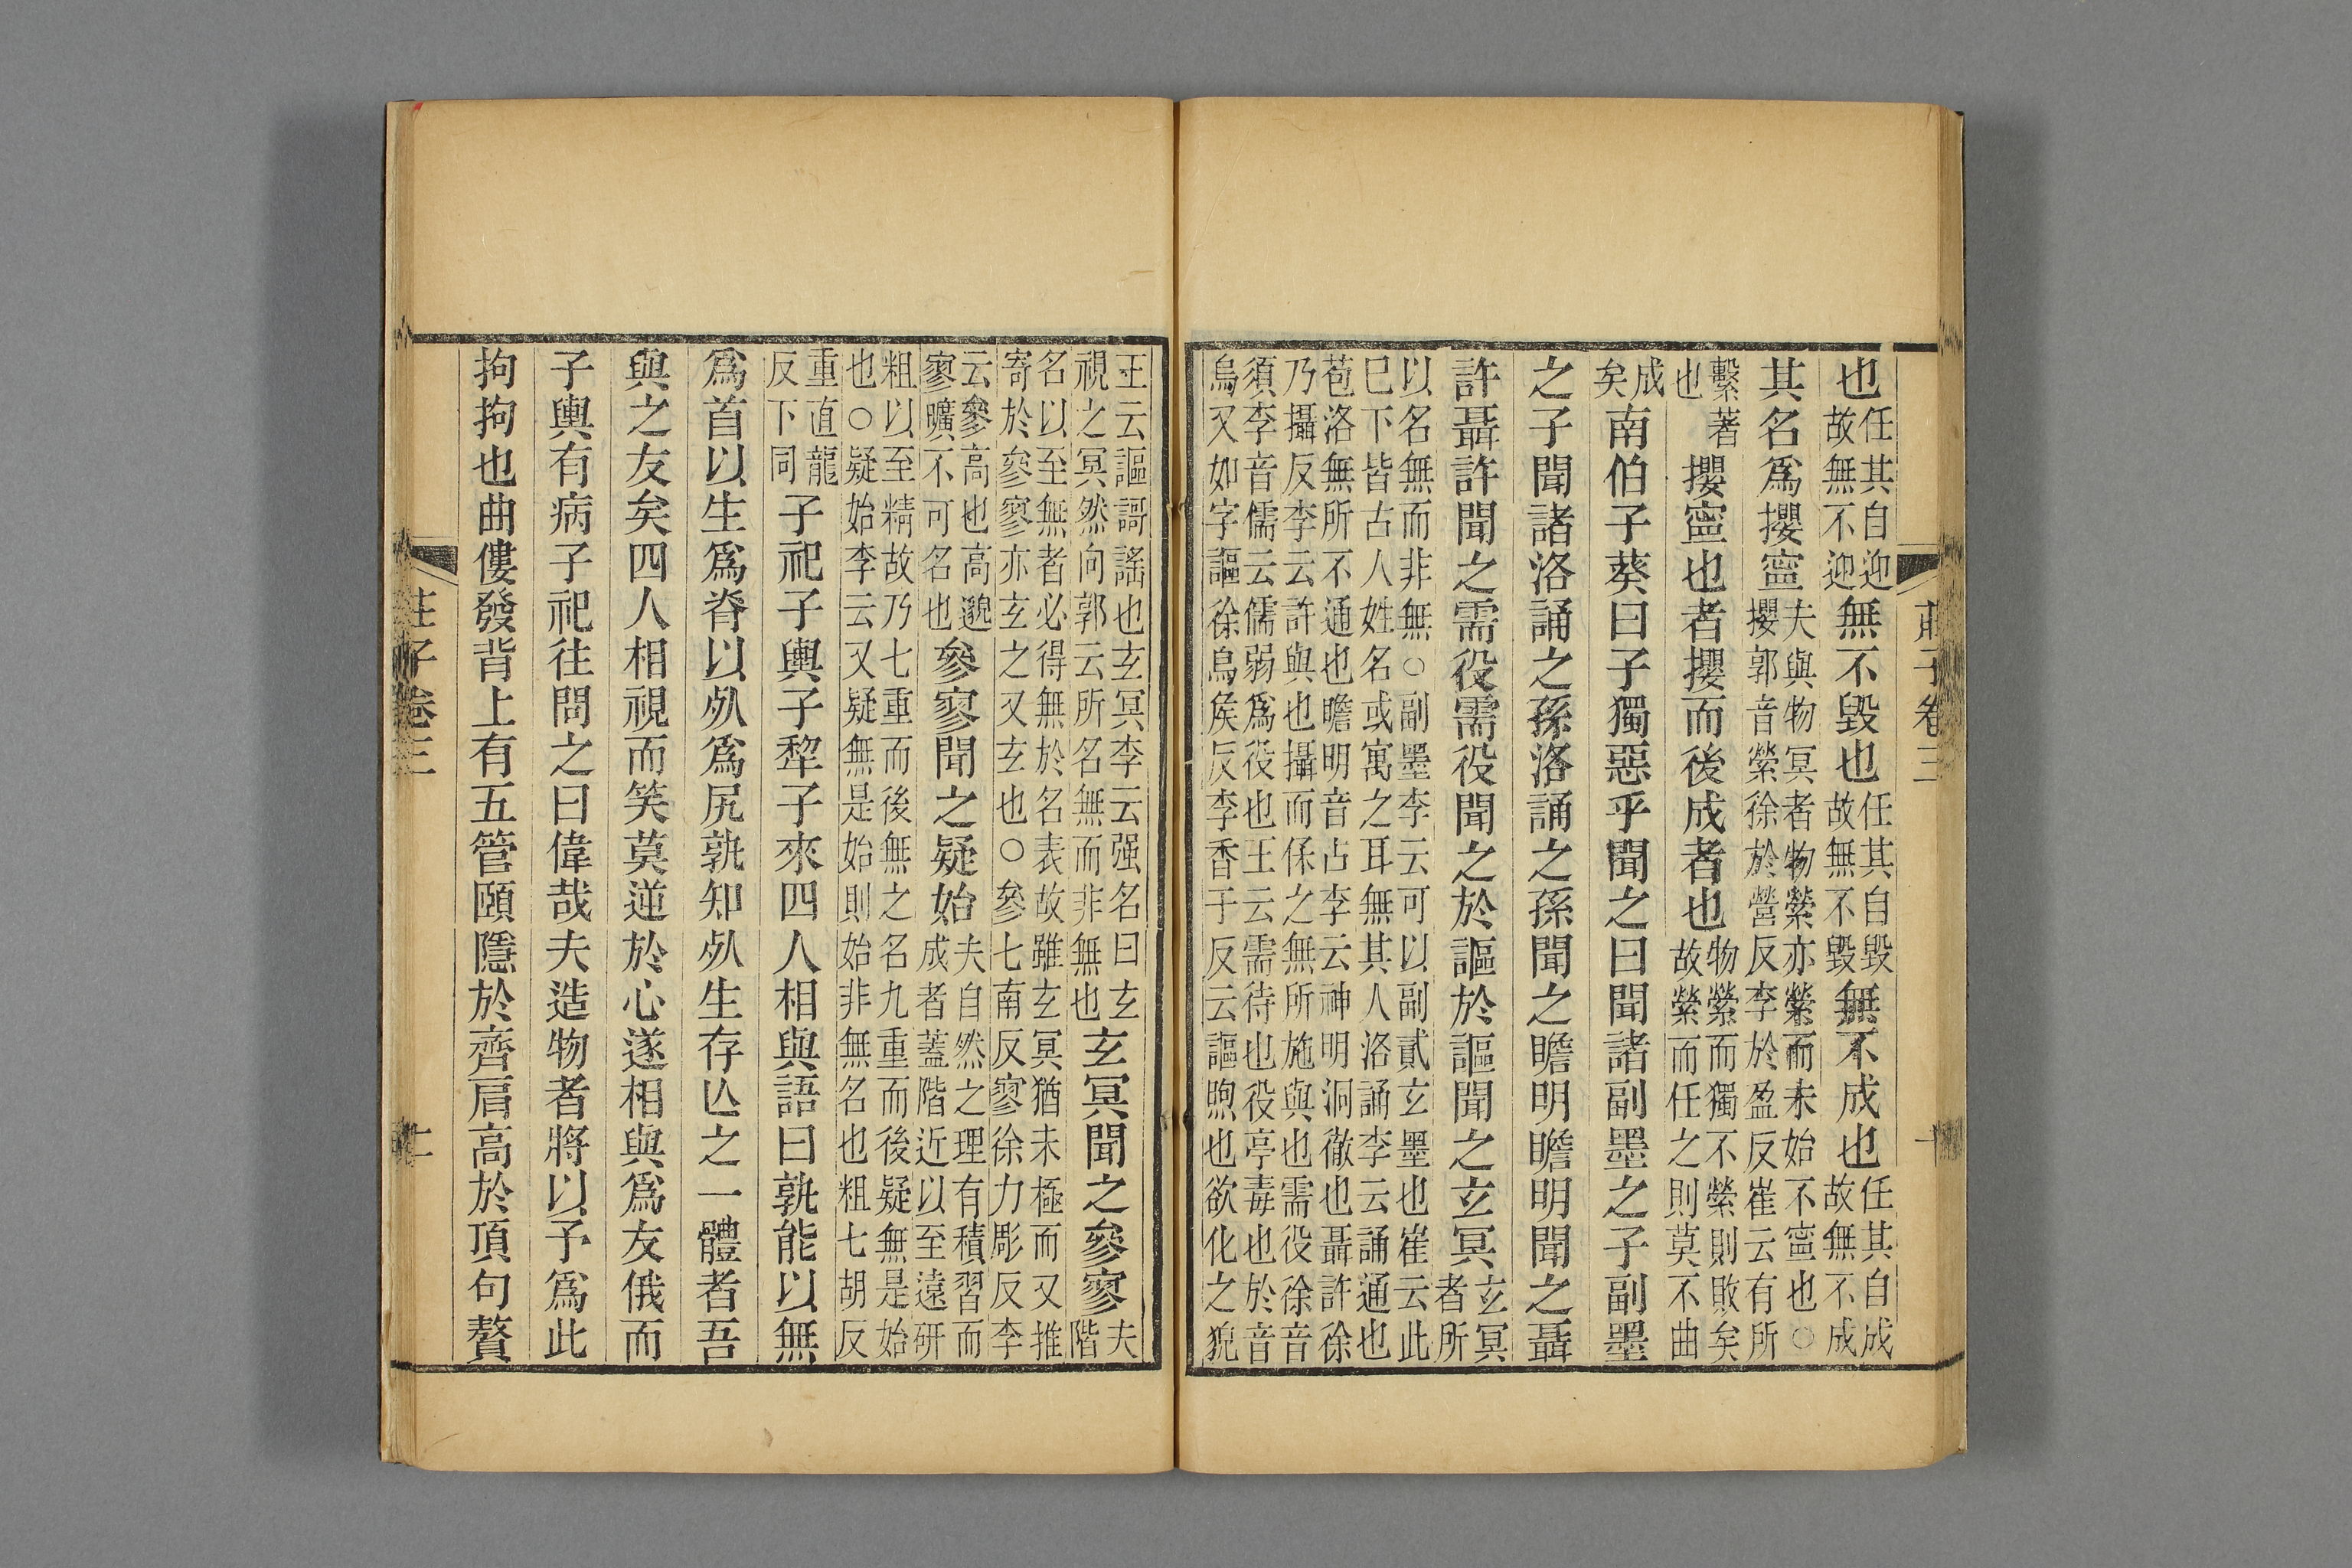 莊子卷三
也任其自迎故無不迎無不毀也任其自毀故無不毀無不成也任其自成故無不成
其名爲攖寍夫與物冥者物縈亦縈而未始不寍也○攖郭音縈徐於營反李於盈反崔云有所
繫著也攖寍也者攖而後成者也物縈而獨不縈則敗矣故縈而任之則莫不曲
成矣南伯子葵曰子獨惡乎聞之曰聞諸副墨之子副墨
之子聞諸洛誦之孫洛誦之孫聞之瞻明瞻明聞之聶
許聶許聞之需役需役聞之於謳於謳聞之玄冥玄冥者所
以名無而非無○副墨李云可以副貳玄墨也崔云此巳下皆古人姓名或寓之耳無其人洛誦李云誦通也
苞洛無所不通也瞻明音占李云神明洞徹也聶許徐乃攝反李云許與也攝而保之無所施與也需役徐音
須李音儒云儒弱爲役也王云需待也役亭毒也於音烏又如字謳徐烏侯反李香于反云謳煦也欲化之貌
王云謳謌謠也玄冥李云强名曰玄視之冥然向郭云所名無而非無也玄冥聞之參寥夫階
名以至無者必得無於名表故雖玄冥猶未極而又推寄於參寥亦玄之又玄也○參七南反寥徐力彫反李
云參高也高邈寥曠不可名也參寥聞之疑始夫自然之理有積習而成者蓋階近以至遠研
粗以至精故乃七重而後無之名九重而後疑無是始也○疑始李云又疑無是始則始非無名也粗七胡反
重直龍反下同子祀子輿子犂子來四人相與語曰孰能以無
爲首以生爲脊以𣦸爲尻孰知𣦸生存亾之一體者吾
與之友矣四人相視而笑莫逆於心遂相與爲友俄而
子輿有病子祀往問之曰偉哉夫造物者將以予爲此
拘拘也曲僂發背上有五管頤隱於齊肩高於頂句贅
莊子卷三